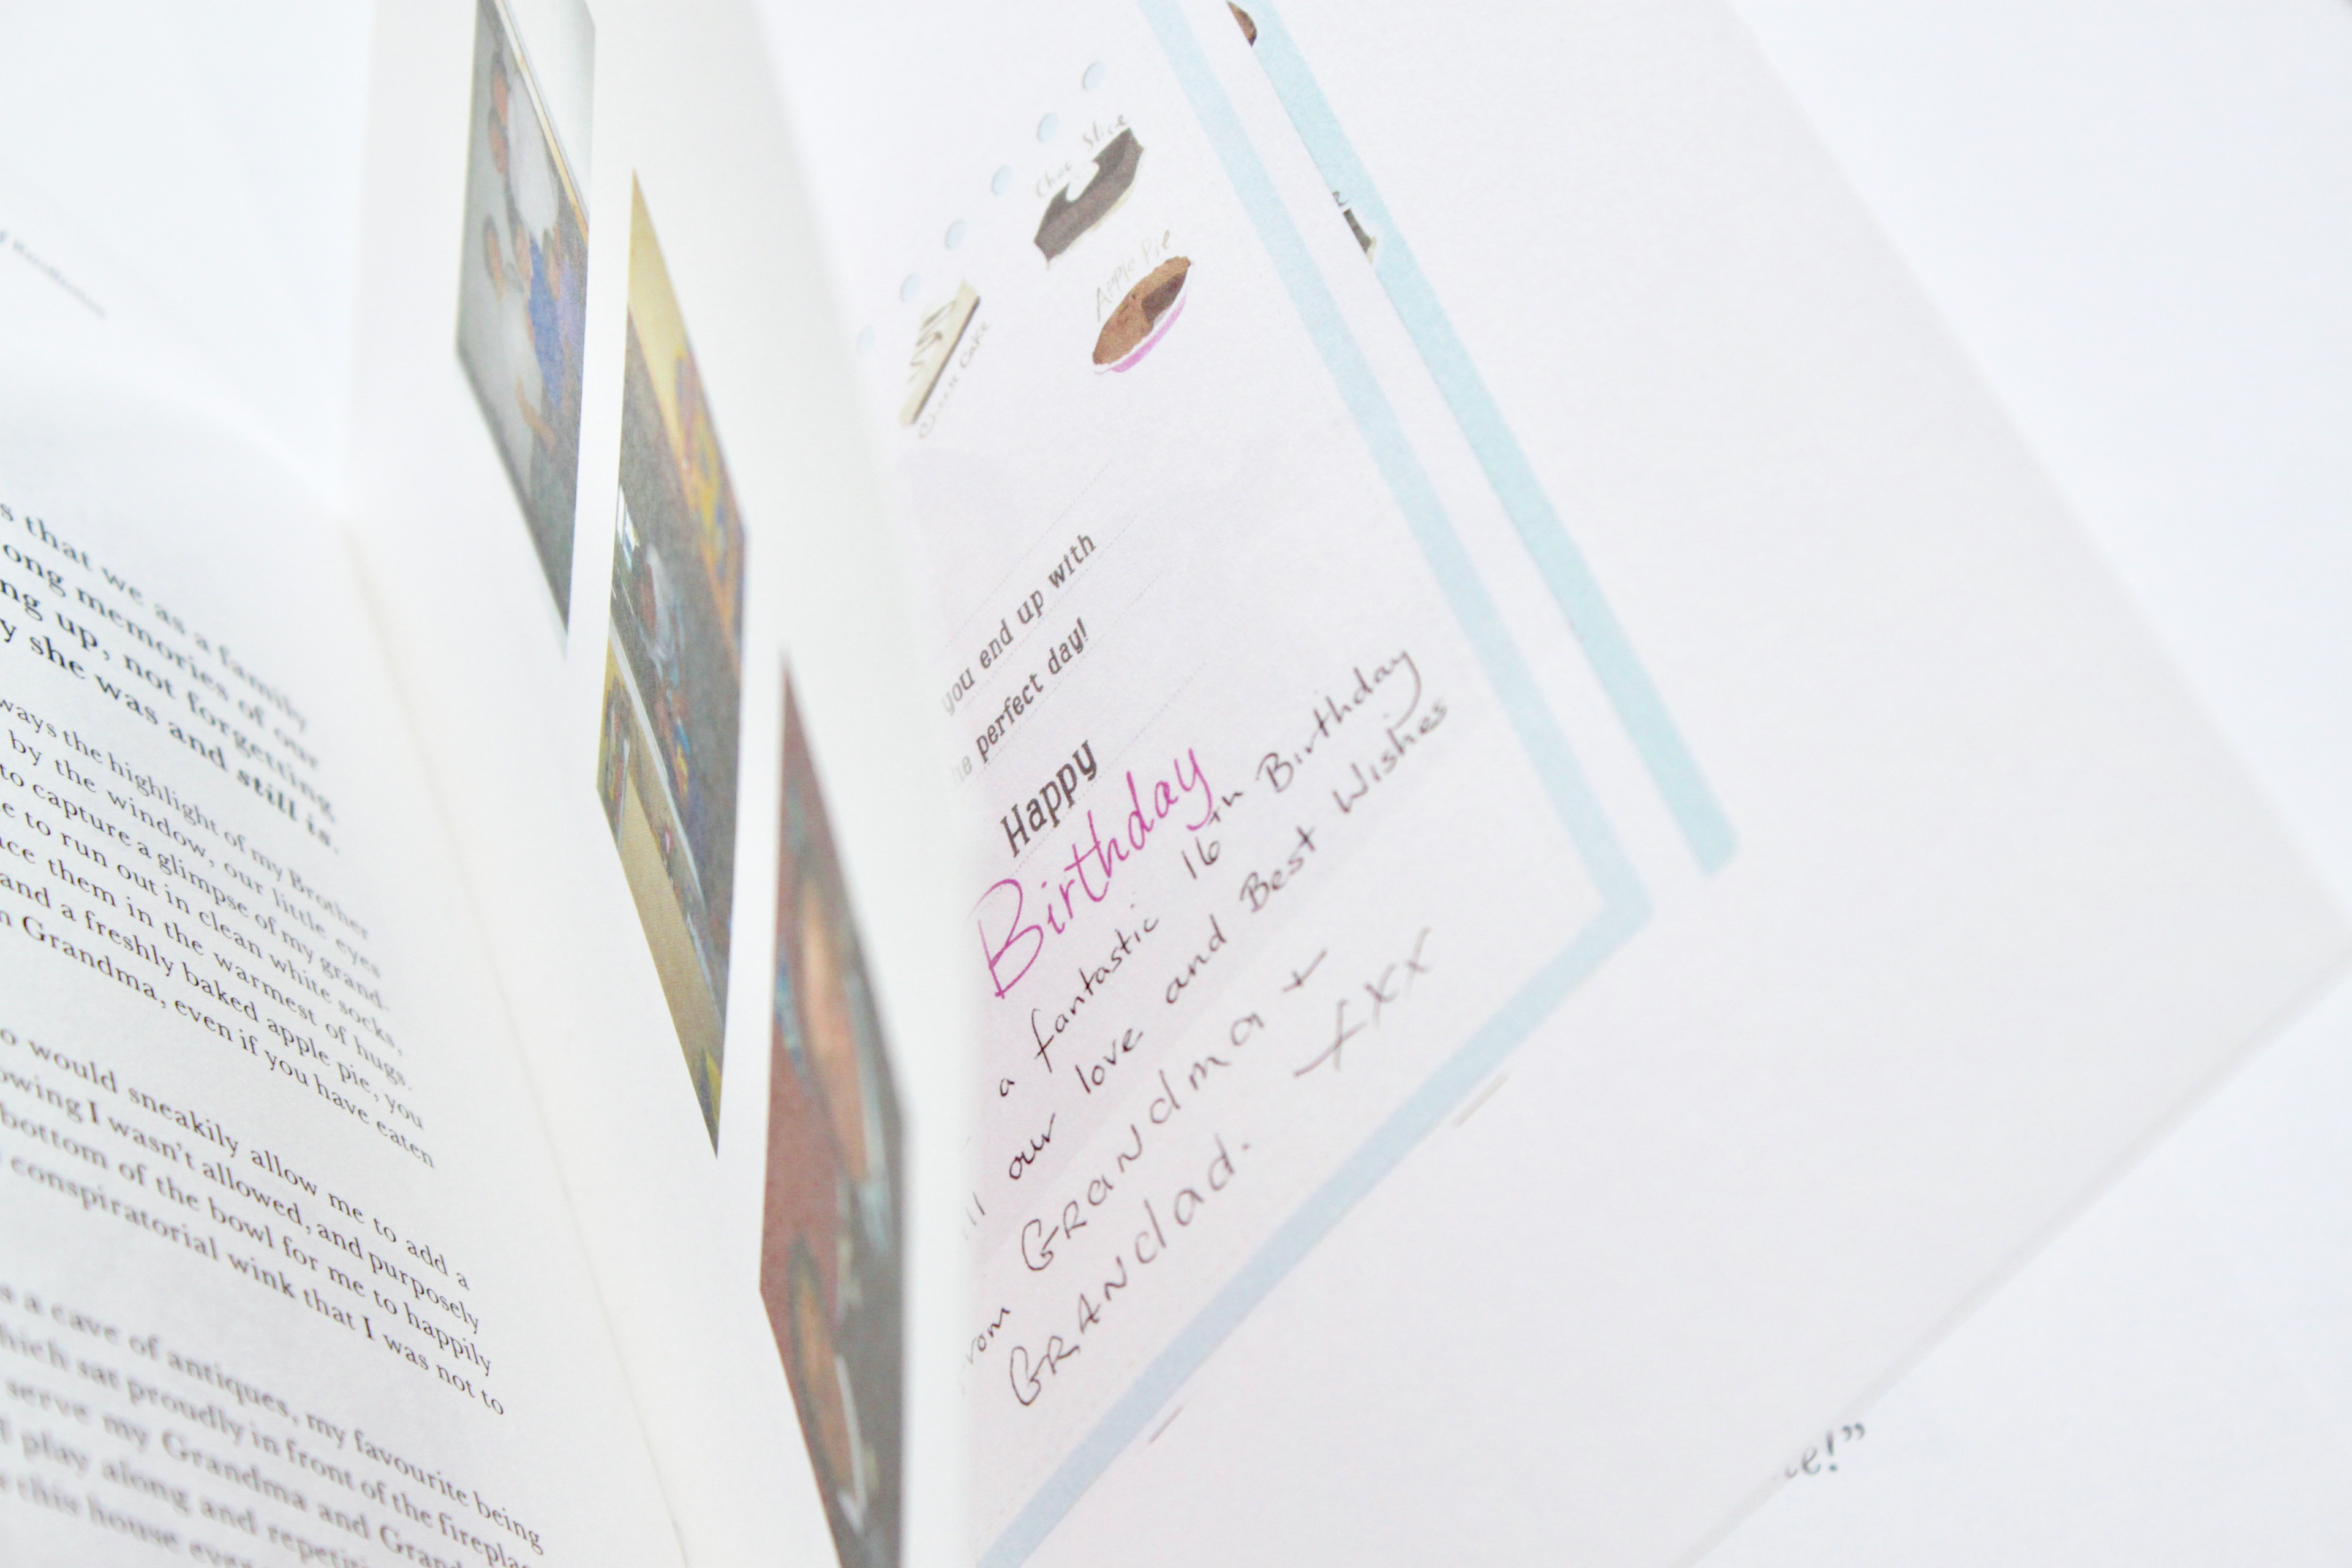 s that we as a family
ong memories of our
ng up, not forgetting
y she was and still is.
ways the highlight of my Brother
by the window, our little eyes
to capture a glimpse of my grand-
e to run out in clean white socks,
ace them in the warmest of hugs.
and a freshly baked apple pie, you
n Grandma, even if you have eaten
o would sneakily allow me to add a
owing I wasn't allowed, and purposely
bottom of the bowl for me to happily
conspiratorial wink that I was not to
s a cave of antiques, my favourite being
hich sat proudly in front of the fireplac
serve my Grandma and Grand
play along and repetiti
this house ever
Choc Slice
Apple Pie
Cheese Cake
you end up with
he perfect day!
Happy
Birthday
a fantastic 16th Birthday
ll our love and Best Wishes
rom Grandma +
GRANdad. xxx
e!”